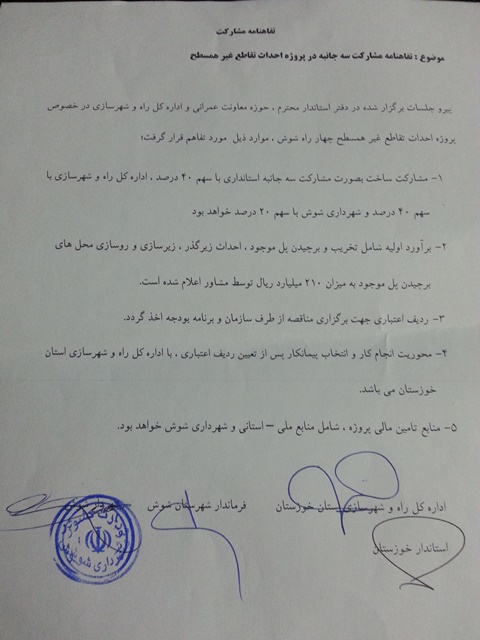 تفاهنامه مشارکت
موضوع : تفاهنامه مشارکت سه جانبه در پروژه احداث تقاطع غیر همسطح
پیرو جلسات برگزار شده در دفتر استاندار محترم ، حوزه معاونت عمرانی و اداره کل راه و شهرسازی در خصوص
پروژه احداث تقاطع غیر همسطح چهار راه شوش ، موارد ذیل مورد تفاهم قرار گرفت؛
۱- مشارکت ساخت بصورت مشارکت سه جانبه استانداری با سهم ۴۰ درصد ، اداره کل راه و شهرسازی با
سهم ۴۰ درصد و شهرداری شوش با سهم ۲۰ درصد خواهد بود
۲- برآورد اولیه شامل تخریب و برچیدن پل موجود ، احداث زیرگذر ، زیرسازی و روسازی محل های
برچیدن پل موجود به میزان ۲۱۰ میلیارد ریال توسط مشاور اعلام شده است.
۳- ردیف اعتباری جهت برگزاری مناقصه از طرف سازمان و برنامه بودجه اخذ گردد.
۴- محوریت انجام کار و انتخاب پیمانکار پس از تعیین ردیف اعتباری ، با اداره کل راه و شهرسازی استان
خوزستان می باشد.
۵- منابع تامین مالی پروژه ، شامل منابع ملی – استانی و شهرداری شوش خواهد بود.
اداره کل راه و شهرسازی استان خوزستان فرماندار شهرستان شوش
استاندار خوزستان
وزارت کشور
شهرداری شوش